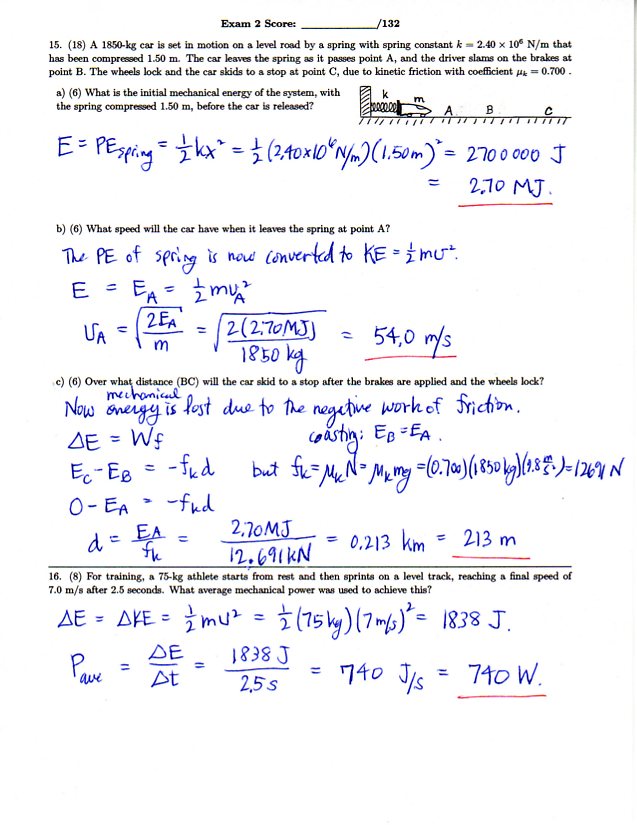 Exam 2 Score: ____________/132
15. (18) A 1850-kg car is set in motion on a level road by a spring with spring constant k = 2.40 × 10⁶ N/m that
has been compressed 1.50 m. The car leaves the spring as it passes point A, and the driver slams on the brakes at
point B. The wheels lock and the car skids to a stop at point C, due to kinetic friction with coefficient μₖ = 0.700 .
a) (6) What is the initial mechanical energy of the system, with
the spring compressed 1.50 m, before the car is released?
k m A B C
E = PEspring = ½kx² = ½(2.40×10⁶N/m)(1.50m)² = 2700000 J
= 2.70 MJ.
b) (6) What speed will the car have when it leaves the spring at point A?
The PE of spring is now converted to KE = ½mv².
E = E_A = ½mv_A²
v_A = √(2E_A/m) = √(2(2.70MJ)/1850 kg) = 54.0 m/s
c) (6) Over what distance (BC) will the car skid to a stop after the brakes are applied and the wheels lock?
mechanical
Now energy is lost due to the negative work of friction.
ΔE = Wf coasting: E_B = E_A.
E_C - E_B = -fₖd but fₖ = μₖN = μₖmg = (0.700)(1850kg)(9.8 m/s²) = 12691 N
0 - E_A = -fₖd
d = E_A/fₖ = 2.70MJ/12.691kN = 0.213 km = 213 m
16. (8) For training, a 75-kg athlete starts from rest and then sprints on a level track, reaching a final speed of
7.0 m/s after 2.5 seconds. What average mechanical power was used to achieve this?
ΔE = ΔKE = ½mv² = ½(75kg)(7m/s)² = 1838 J.
Pave = ΔE/Δt = 1838 J/2.5 s = 740 J/s = 740 W.